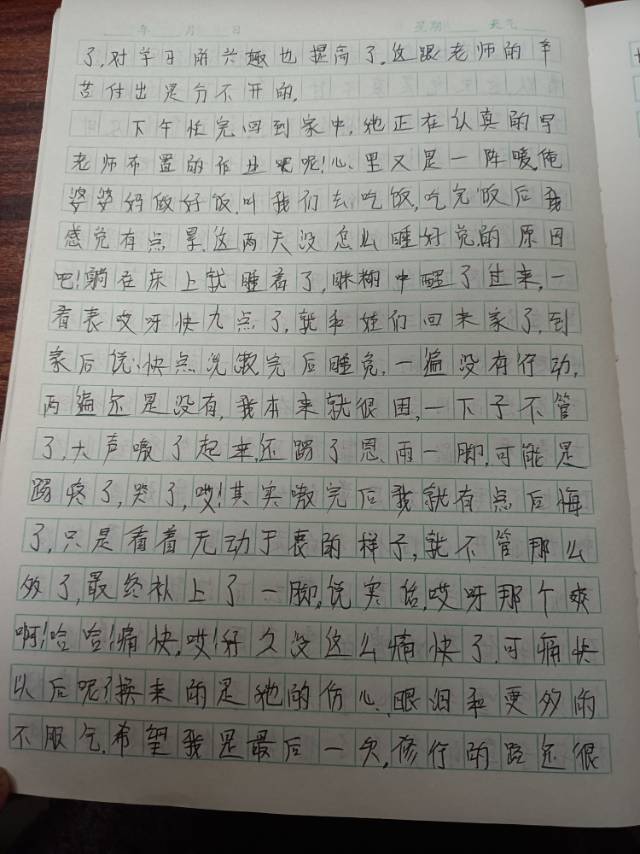 年 月 日 星期 天气
了,对学习的兴趣也提高了,这跟老师的辛
苦付出是分不开的。
下午忙完回到家中,她正在认真的写
老师布置的作业呢!心里又是一阵暖,俺
婆婆妈做好饭,叫我们去吃饭,吃完饭后我
感觉有点累,这两天没怎么睡好觉的原因
吧!躺在床上就睡着了,眯糊中醒了过来,一
看表哎呀快九点了,就和娃们回来家了,到
家后说:快点洗漱完后睡觉,一遍没有行动,
两遍还是没有,我本来就很困,一下子不管
了,大声嗷了起来,还踢了恩雨一脚,可能是
踢疼了,哭了,哎!其实嗷完后我就有点后悔
了,只是看着无动于衷的样子,就不管那么
多了,最终补上了一脚,说实话,哎呀那个爽
啊!哈哈!痛快,哎!好久没这么痛快了,可痛快
以后呢?换来的是她的伤心、眼泪和更多的
不服气,希望我是最后一次,修行的路还很